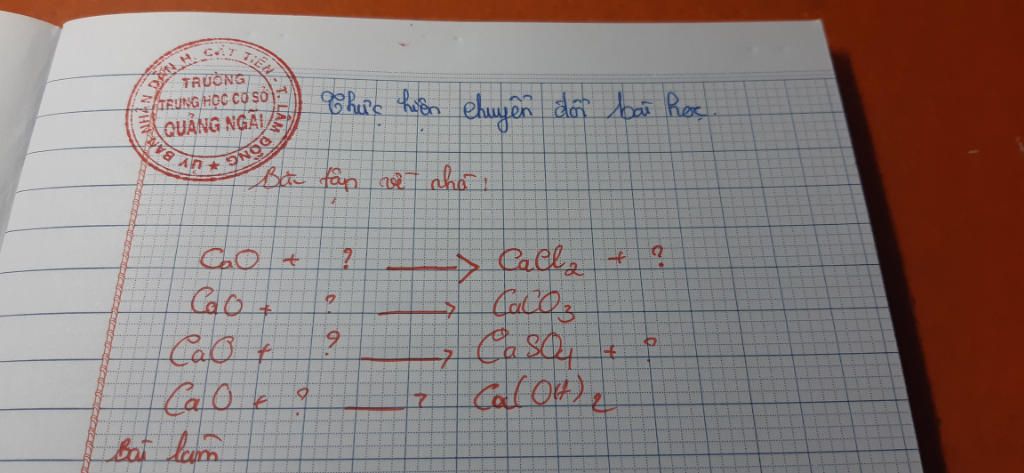 ỦY BAN NHÂN DÂN H. CÁT TIÊN - T. LÂM ĐỒNG
TRƯỜNG
TRUNG HỌC CƠ SỞ
QUẢNG NGÃI
Thực hiện chuyển đổi bài học.
Bài tập về nhà:
CaO + ? → CaCl2 + ?
CaO + ? → CaCO3
CaO + ? → CaSO4 + ?
CaO + ? → Ca(OH)2
Bài làm